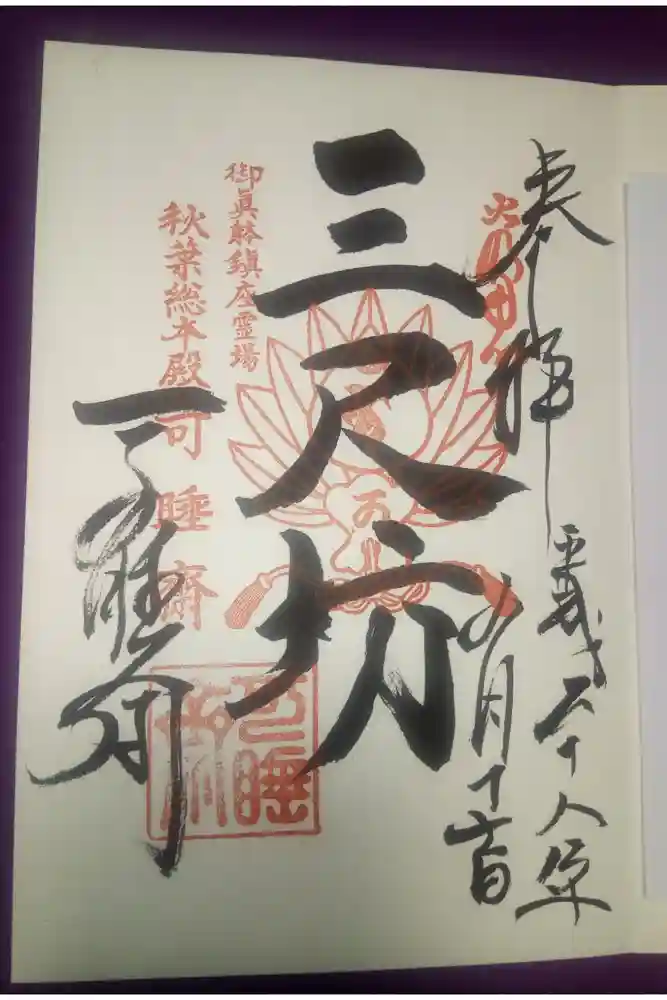 奉拝
平成二十八年
九月十六日
三尺坊
御真躰鎮座霊場
秋葉総本殿可睡齋
可睡齋